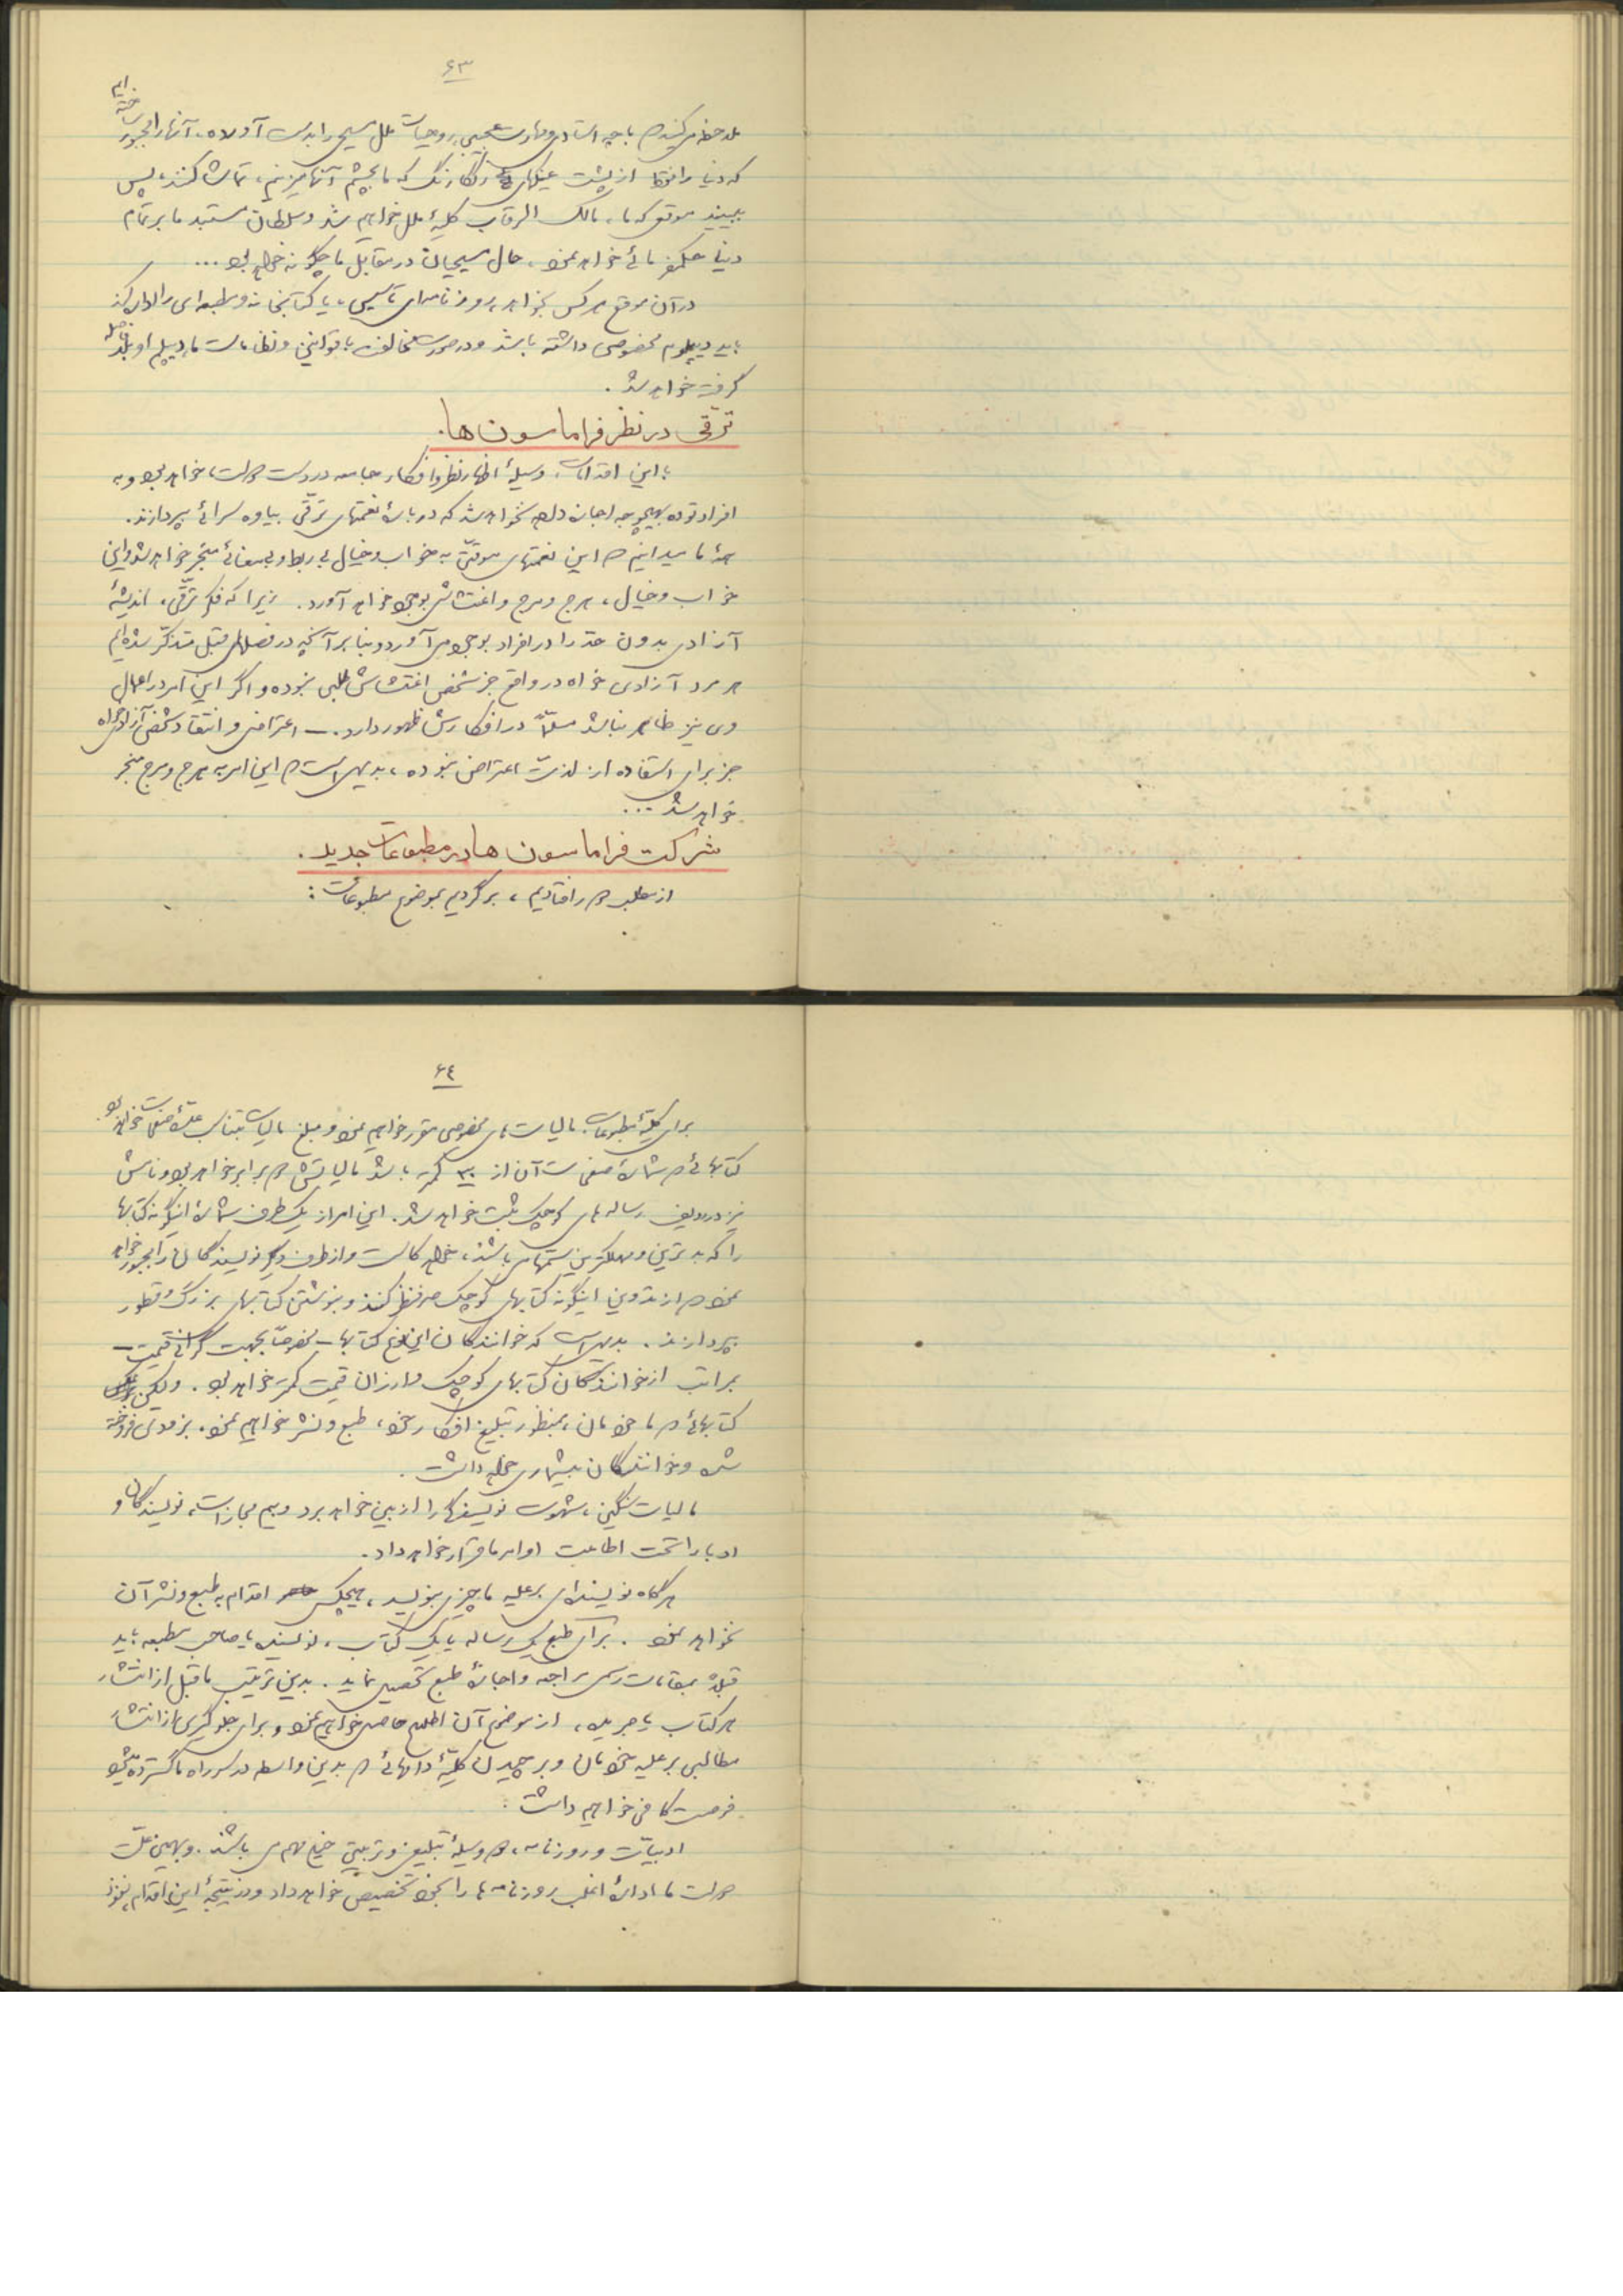 ۶۳
ملاحظه میکنید که با چه استادی و مهارت عجیبی روحیات ملل مسیحی را بدست آورده، آنها را مجبور ساخته‌ایم
که دنیا را فقط از پشت عینکهای رنگارنگ که ما بچشم آنها میزنیم، تماشا کنند، پس
ببینید موقعی که ما، مالک الرقاب کلیهٔ ملل خواهیم شد و سلطان مستبد ما بر تمام
دنیا حکمفرمائی خواهد نمود، حال مسیحیان در مقابل ما چگونه خواهد بود ...
در آن موقع هر کس بخواهد روزنامه‌ای تأسیس، یا کتابخانه و مطبعه‌ای را اداره کند
باید دیپلوم مخصوصی داشته باشد و در صورت مخالفت با قوانین و نظامات ما دیپلم او بلافاصله
گرفته خواهد شد.
ترقی در نظر فراماسون ها.
با این اقدامات، وسیلهٔ اظهار نظر و افکار جامعه در دست دولت، خواهد بود و به
افراد توده بهیچوجه اجازه داده نخواهد شد که دربارهٔ نعمتهای ترقّی بیاوه سرائی بپردازند.
همهٔ ما میدانیم که این نعمتهای موقتی به خواب و خیال بی ربط و بیمعنائی منجر خواهد شد و این
خواب و خیال، هرج و مرج و اغتشاش بوجود خواهد آورد. زیرا که فکر ترقّی، اندیشهٔ
آزادی بدون حد را در افراد بوجود می آورد و بنابر آنچه در فصلهای قبل متذکر شده‌ایم
هر مرد آزادی خواه در واقع جز شخص اغتشاش طلبی نبوده و اگر این امر در اعمال
وی نیز ظاهر نباشد مسلّماً در افکارش ظهور دارد. – اعتراض و انتقاد شخص آزادیخواه
جز برای استفاده از لذت اعتراض نبوده، بدیهی است که این امر به هرج و مرج منجر
خواهد شد ...
شرکت فراماسون ها در مطبوعات جدید.
از مطلب دور افتادیم، برگردیم بموضوع مطبوعات:
۶٤
برای کلیهٔ مطبوعات مالیات های مخصوصی مقرر خواهیم نمود و مبلغ مالیات بتناسب عدّهٔ صفحات خواهد بود.
کتابهائی که شمارهٔ صفحات آن از ۳۰۰ کمتر باشد مالیاتش دو برابر خواهد بود و نامش
نیز در ردیف رساله های کوچک ثبت خواهد شد. این امر از یک طرف شمارهٔ اینگونه کتابها
را که بدترین و مهلکترین سمّها می باشند، خواهد کاست و از طرف دیگر نویسندگان را مجبور خواهد
نمود که از تدوین اینگونه کتابهای کوچک صرفنظر کنند و بنوشتن کتابهای بزرگ و قطور
بپردازند. بدیهی است که خوانندگان این نوع کتابها – مخصوصاً بجهت گرانی قیمت –
بمراتب از خوانندگان کتابهای کوچک و ارزان قیمت کمتر خواهد بود. ولیکن برعکس
کتابهائی که ما خودمان، بمنظور تبلیغ افکار خود، طبع و نشر خواهیم نمود. بزودی فروخته
شده و خوانندگان بیشماری خواهد داشت.
مالیات سنگین، شهوت نویسندگی را از بین خواهد برد و بیم مجازات، نویسندگان و
ادبا را تحت اطاعت اوامر ما قرار خواهد داد.
هرگاه نویسنده‌ای بر علیه ما چیزی بنویسد، هیچکس اقدام به طبع و نشر آن
نخواهد نمود. برای طبع یک رساله یا یک کتاب، نویسنده یا صاحب مطبعه باید
قبلاً بمقامات رسمی مراجعه و اجازهٔ طبع تحصیل نماید. بدین ترتیب ما قبل از انتشار
هر کتاب یا جریده، از موضوع آن اطلاع حاصل خواهیم نمود و برای جلوگیری از انتشار
مطالبی بر علیه خودمان و بر چیدن کلیّهٔ دامهائی که بدین واسطه در سر راه ما گسترده میشود
فرصت کافی خواهیم داشت.
ادبیّات و روزنامه، دو وسیلهٔ تبلیغی و تربیتی خیلی مهم می باشند. و بهمین علّت
دولت ما ادارهٔ اغلب روزنامه ها را بخود تخصیص خواهد داد و در نتیجهٔ این اقدام، نفوذ